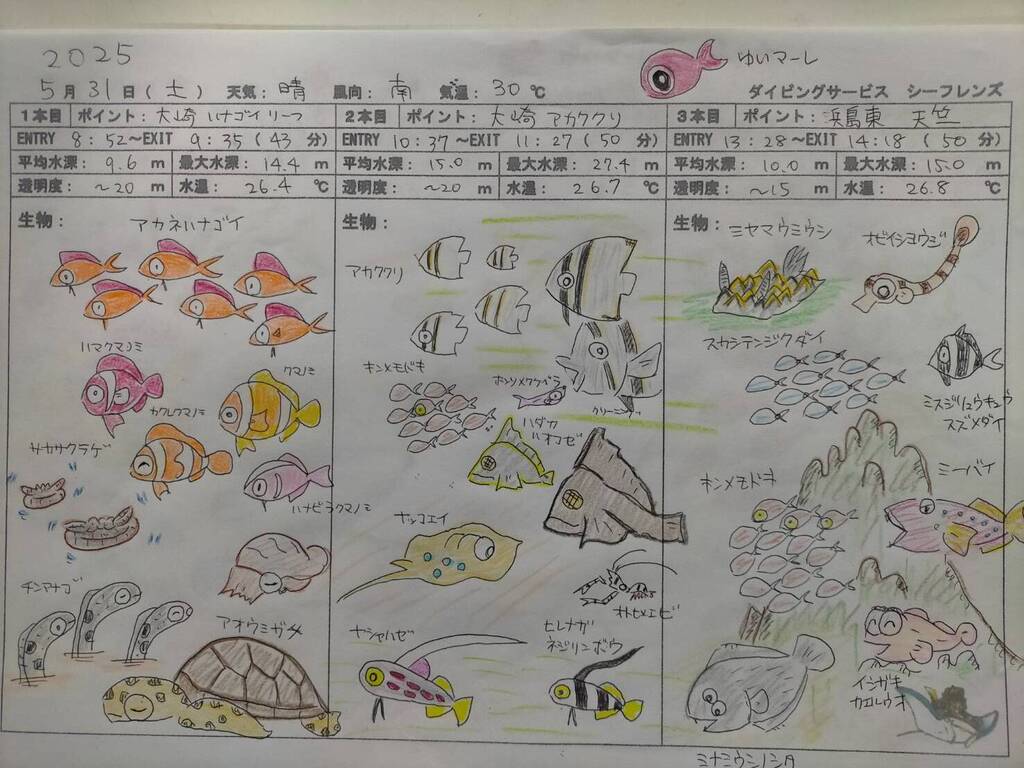 2025
5月31日(土) 天気: 晴 風向: 南 気温: 30℃
ゆいマーレ
ダイビングサービス シーフレンズ
1本目 ポイント: 大崎 ハナゴイリーフ
ENTRY 8:52~EXIT 9:35 (43 分)
平均水深: 9.6 m 最大水深: 14.4 m
透明度: ~20 m 水温: 26.4 ℃
生物:
アカネハナゴイ
ハマクマノミ
クマノミ
カクレクマノミ
サカサクラゲ
ハナビラクマノミ
チンアナゴ
アオウミガメ
2本目 ポイント: 大崎 アカククリ
ENTRY 10:37~EXIT 11:27 (50 分)
平均水深: 15.0 m 最大水深: 27.4 m
透明度: ~20 m 水温: 26.7 ℃
生物:
アカククリ
キンメモドキ
ホソメクワベラ
クリーニング
ハダカ
ハオコゼ
ヤッコエイ
オトヒメエビ
ヤシャハゼ
ヒレナガ
ネジリンボウ
3本目 ポイント: 浜島東 天竺
ENTRY 13:28~EXIT 14:18 (50 分)
平均水深: 10.0 m 最大水深: 15.0 m
透明度: ~15 m 水温: 26.8 ℃
生物:
ミヤマウミウシ
オビイシヨウジ
スカシテンジクダイ
ミスジリュウキュウ
スズメダイ
キンメモドキ
ミーバイ
イシガキ
カエルウオ
ミナミウシノシタ